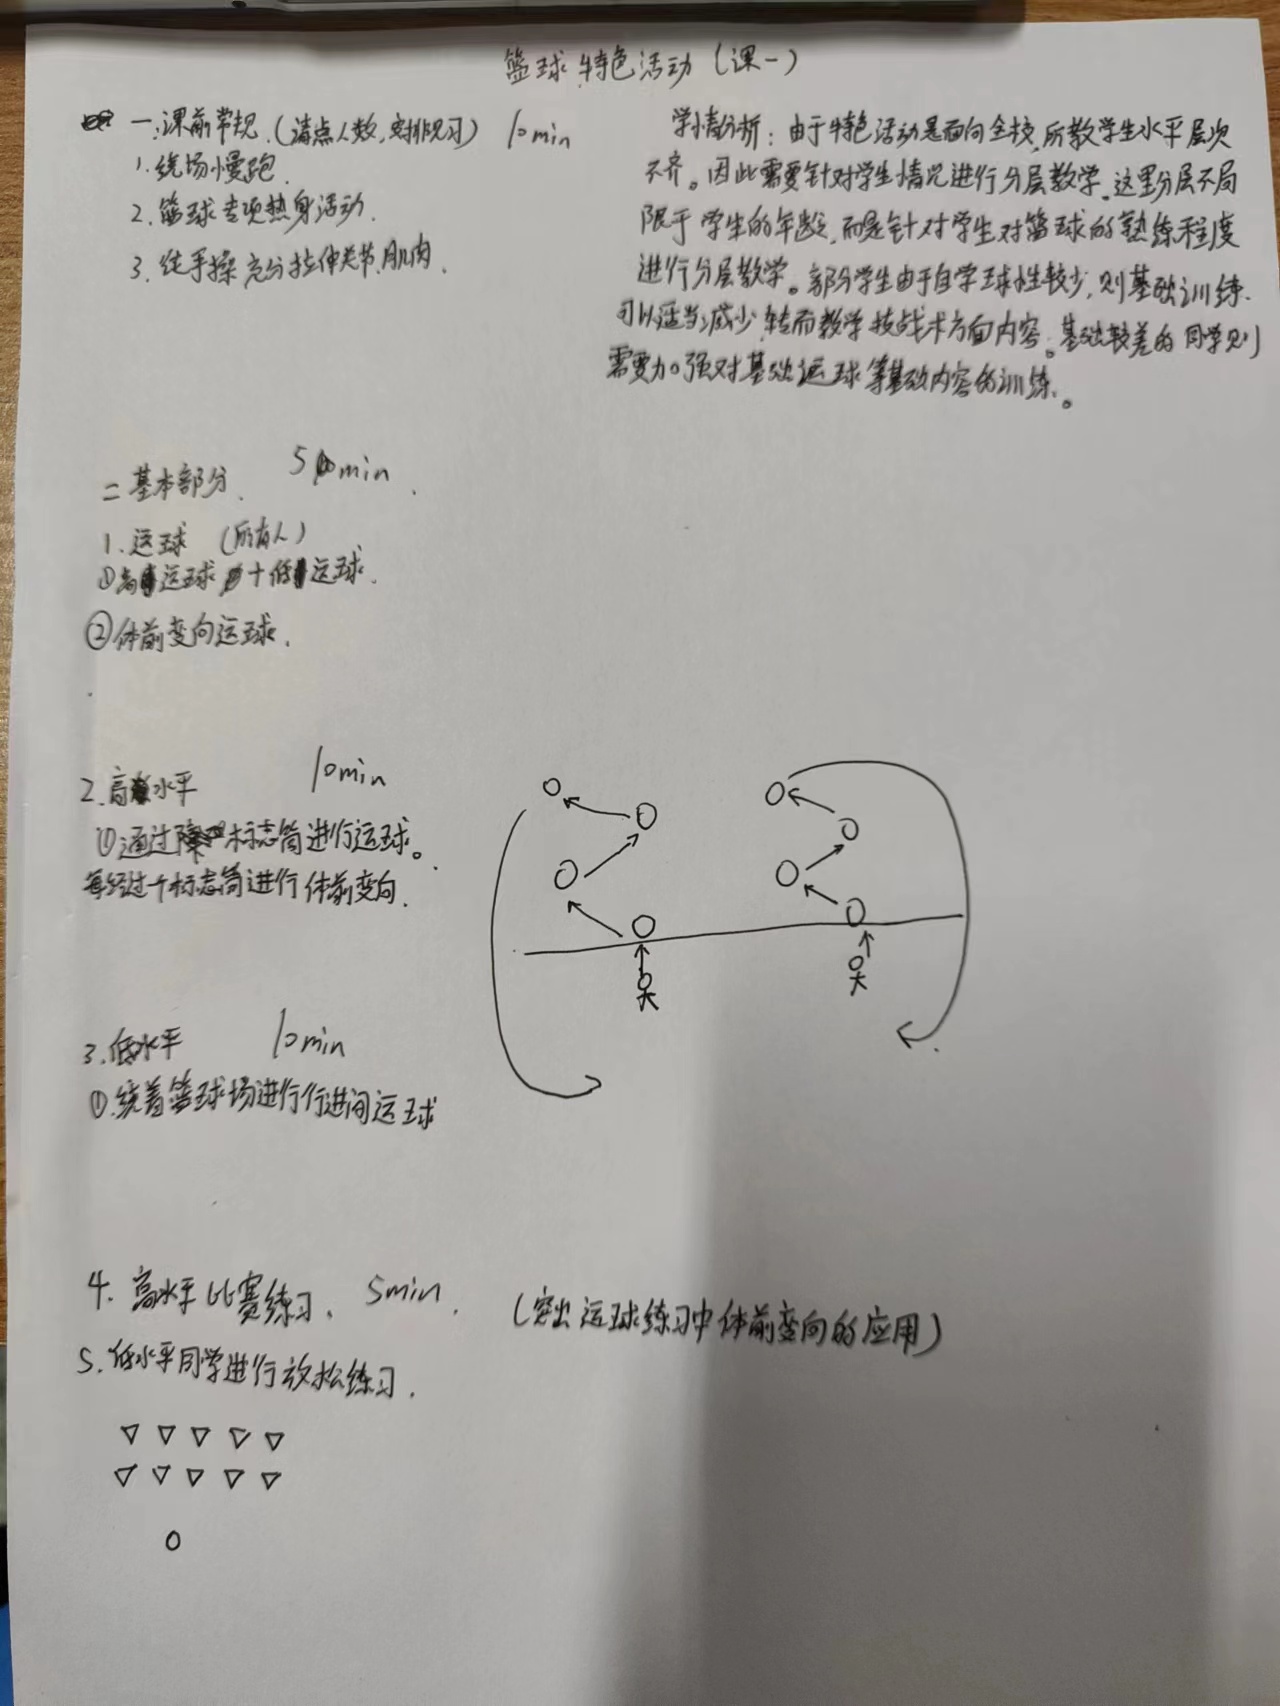 篮球特色活动(课一)
一.课前常规.(清点人数,安排见习) 10min
1.绕场慢跑.
2.篮球专项热身活动.
3.徒手操充分拉伸关节,肌肉.
学情分析:由于特色活动是面向全校,所教学生水平层次
不齐。因此需要针对学生情况进行分层教学.这里分层不局
限于学生的年龄,而是针对学生对篮球的熟练程度
进行分层教学。部分学生由于自学球性较少,则基础训练.
可以适当减少,转而教学技战术方面内容。基础较差的同学则
需要加强对基础运球等基础内容的训练.。
二基本部分. 50min.
1.运球 (所有人)
①高运球+低运球.
②体前变向运球.
2.高水平 10min
①通过标志筒进行运球。
每经过一个标志筒进行体前变向.
3.低水平 10min
①.绕着篮球场进行行进间运球
4.高水平比赛练习. 5min. (突出运球练习中体前变向的应用)
5.低水平同学进行放松练习.